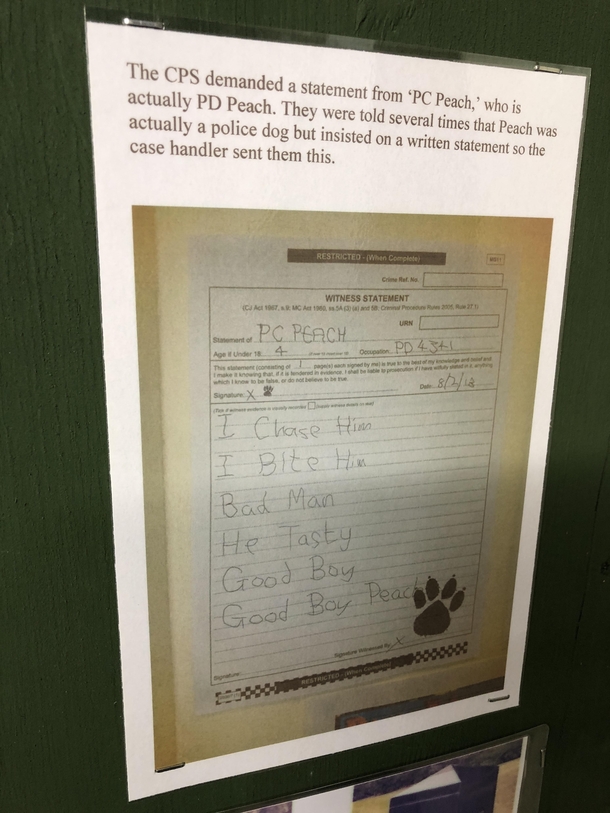 The CPS demanded a statement from ‘PC Peach,’ who is
actually PD Peach. They were told several times that Peach was
actually a police dog but insisted on a written statement so the
case handler sent them this.
RESTRICTED - (When Complete)
MG11
Crime Ref. No.
WITNESS STATEMENT
(CJ Act 1967, s.9; MC Act 1980, ss.5A (3) (a) and 5B; Criminal Procedure Rules 2005, Rule 27.1)
URN
Statement of PC PEACH
Age if Under 18: 4 Occupation: PD 4341
This statement (consisting of 1 page(s) each signed by me) is true to the best of my knowledge and belief and
I make it knowing that, if it is tendered in evidence, I shall be liable to prosecution if I have wilfully stated in it, anything
which I know to be false, or do not believe to be true.
Signature: X Date: 8/2/13
I Chase Him
I BIte Him
Bad Man
He Tasty
Good Boy
Good Boy Peach
Signature: Signature Witnessed By: X
RESTRICTED - (When Complete)